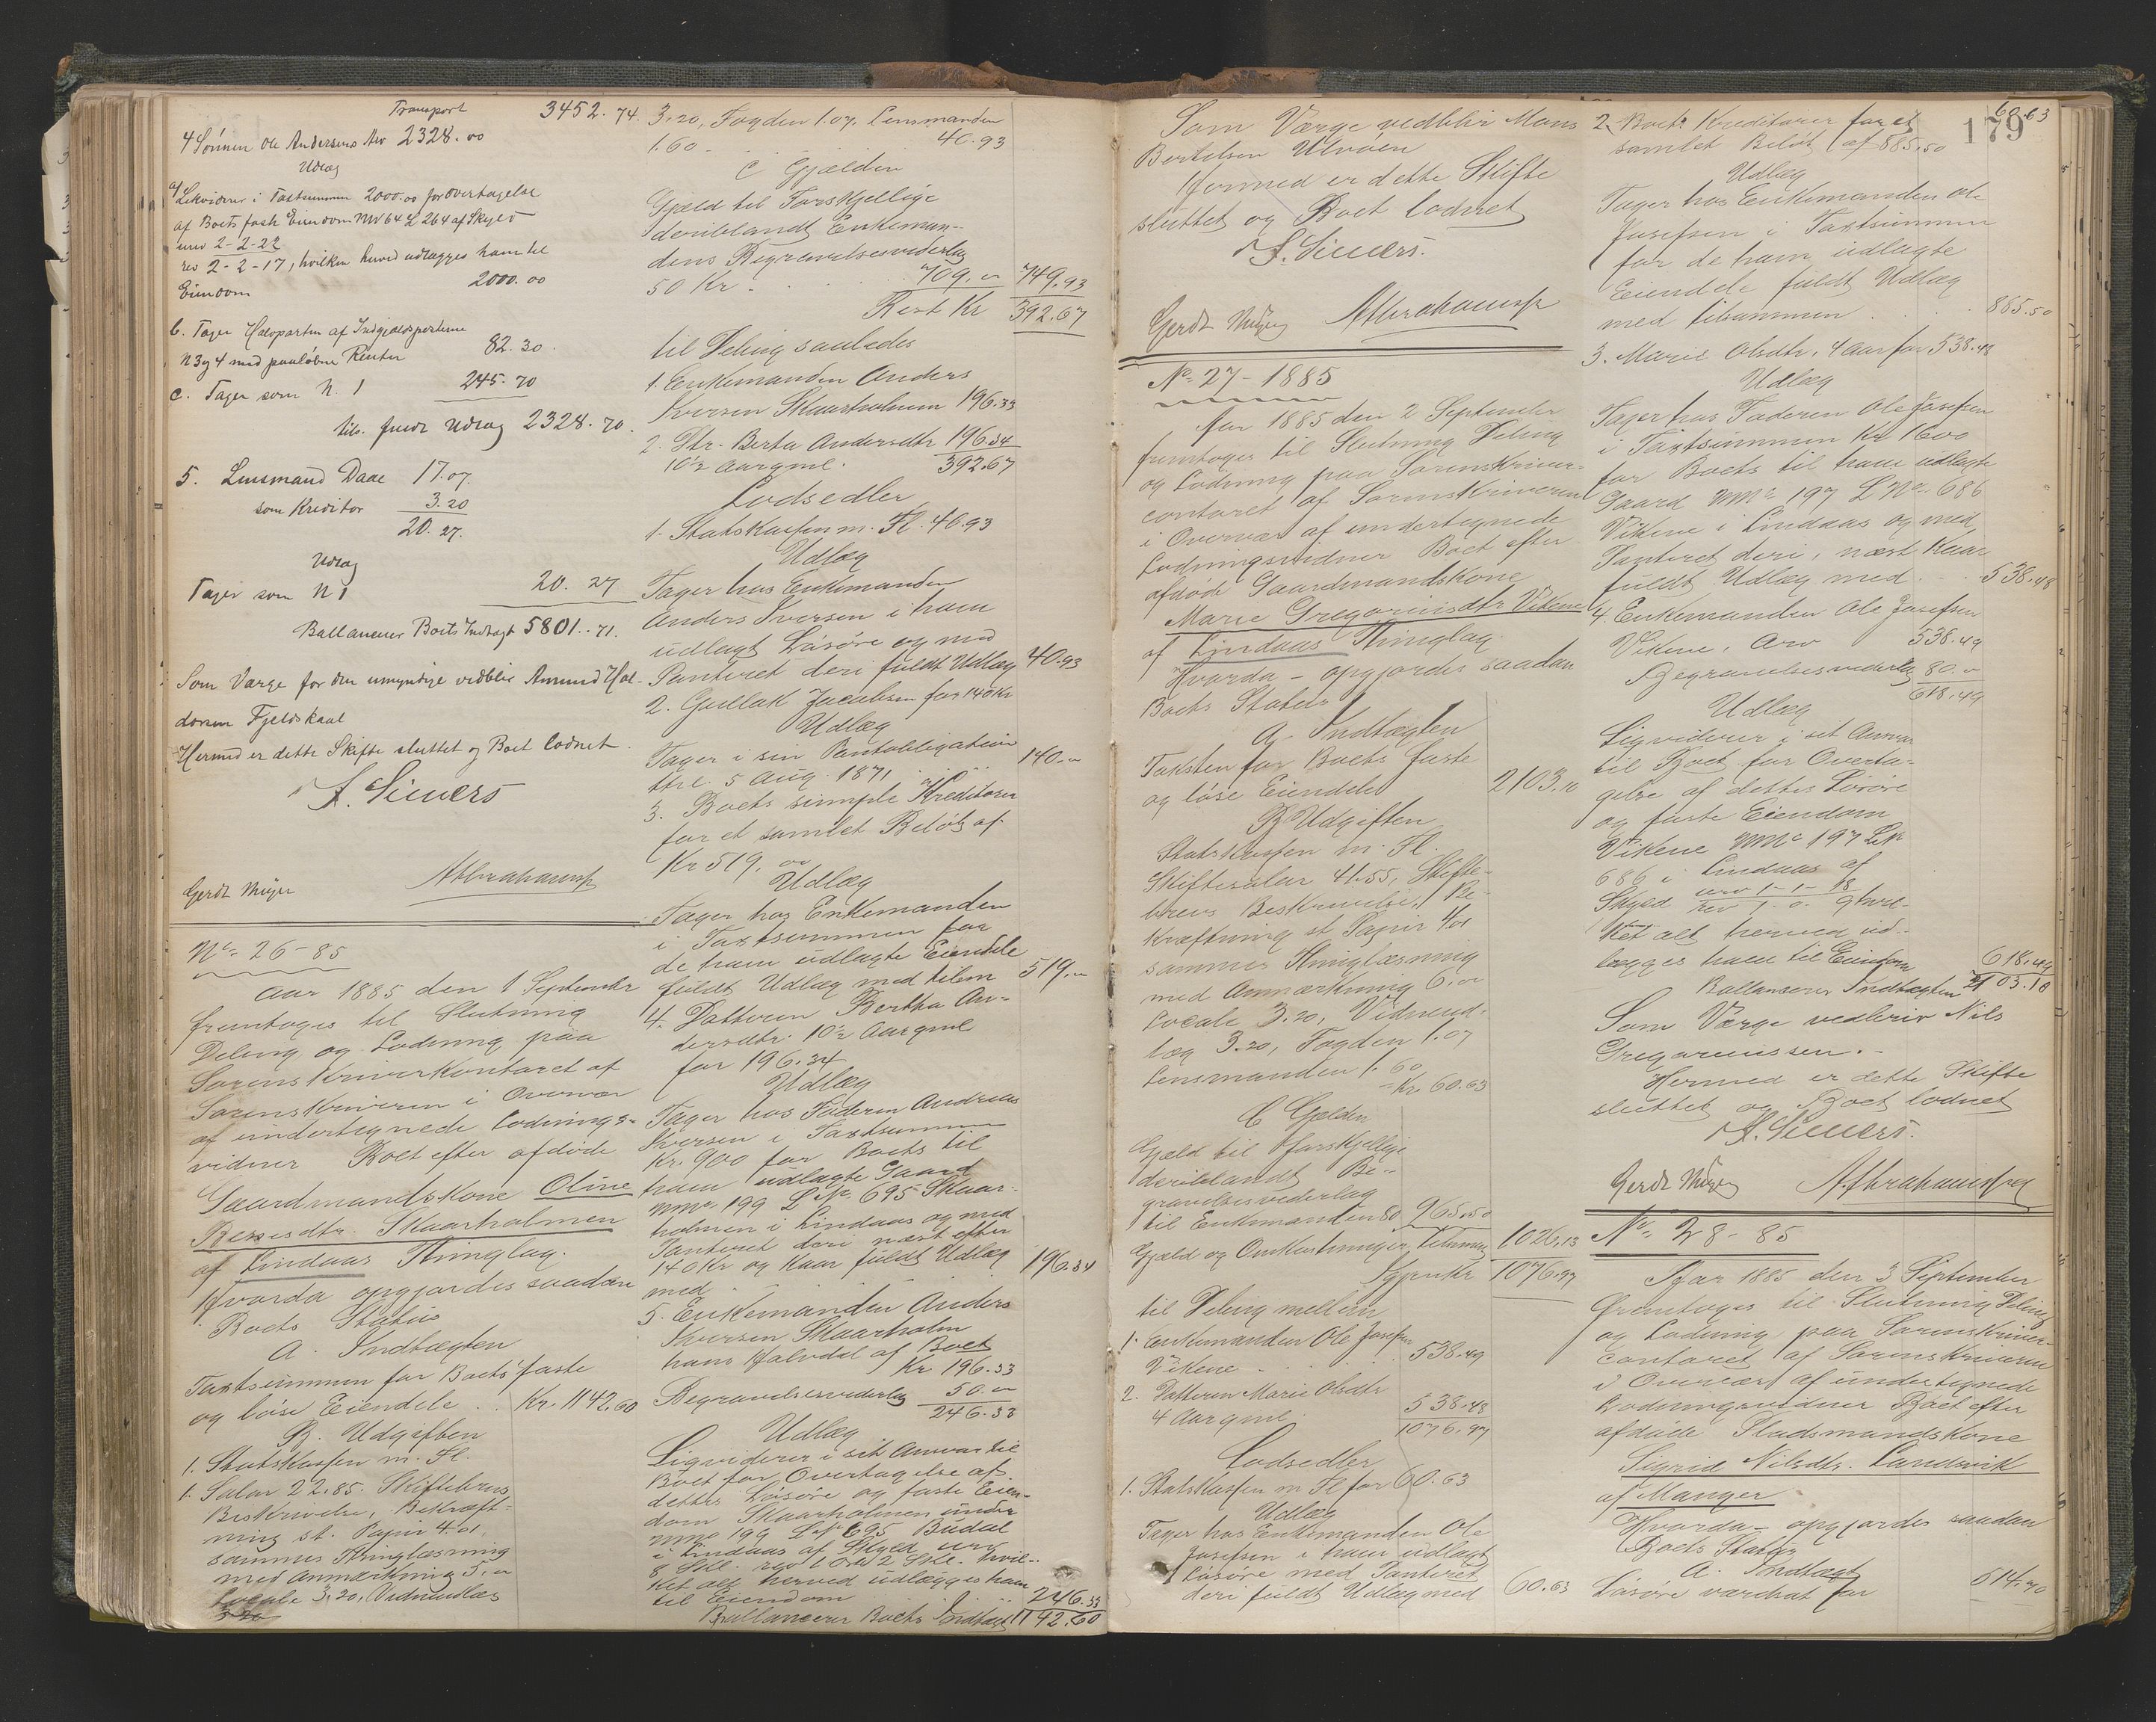 Transport 3452.74.
4 Sønnen Ole Andersens Arv 2328.00
Udlæg
a/ Likviderer i Taxtsummen 2000.00 for Overtagelse
af Boets faste Eiendom MN 64 L 264 af Skyld
urev 2-2-22
rev 2-2-17, hvilken herved udlægges ham til
Eiendom 2000.00
b. Tager Halvparten af Indgjældsposterne
N 3 og 4 med paaløbne Renter 82.30.
c. Tager som N. 1 245.70
tils. fuldt Udlæg 2328.70.
5. Lensmand Daae 17.07.
som Kreditor 3.20
20.27.
Udlæg
Tager som N 1 20.27
Ballancerer Boets Indtægt 5801.71.
Som Værge for den umyndige vedblir Amund Hal-
dorsen Fjeldskaal
Hermed er dette Skifte sluttet og Boet lodnet.
A. Siewers
Gerdt Meyer A Abrahamsen
No 26-85
Aar 1885 den 1 September
fremtoges til Slutning
Deling og Lodning paa
Sorenskriverkontoret af
Sorenskriveren i Overvær
af undertegnede Lodnings-
vidner Boet efter afdøde
Gaardmandskone Oline
Bessesdtr. Skaarholmen
af Lindaas Thinglag.
Hvorda opgjordes saadan
Boets Status
A. Indtægten
Taxtsummen for Boets faste
og løse Eiendele . . Kr. 1142.60
B. Udgiften
1. Statskassen m. Fl.
1. Salar 22.85. Skiftebrevs
Beskrivelse, Bekræft-
ning st. Papir 4.01.
sammes Thinglæsning
med Anmærkning 5.00
Locale 3.20, Vidneudlæg
3.20, Fogden 1.07, Lensmanden
1.60 40.93
C Gjælden
Gjæld til Forskjellige
deriblandt Enkeman-
dens Begravelsesvederlag
50 Kr . . . 709.00 749.93
Rest Kr 392.67
til Deling saaledes
1. Enkemanden Anders
Iversen Skaarholmen 196.33
2. Dtr. Berta Andersdtr 196.34
10½ Aar gml. 392.67
Lodsedler
1. Statskassen m. Fl. 40.93
Udlæg
Tager hos Enkemanden
Anders Iversen i ham
udlagt Løsøre og med
Panteret deri fuldt Udlæg 40.93
2. Gullak Jacobsen for 140 Kr
Udlæg
Tager i sin Pantobligation
thl. 5 Aug. 1871 . . . 140.00
3. Boets simple Kreditorer
for et samlet Beløb af
Kr 519.00
Udlæg
Tager hos Enkemanden
i Taxtsummen for
de ham udlagte Eiendele
fuldt Udlæg med tilsm 519.00
4. Datteren Bertha An-
dersdtr. 10½ Aar gml
for 196.34
Udlæg
Tager hos Faderen Andreas
Iversen i Taxtsummen
Kr. 900 for Boets til
ham udlagte Gaard
MNo 199 LNo 695 Skaar-
holmen i Lindaas og med
Panteret deri næst efter
140 Kr og Kaar fuldt Udlæg
med . . . 196.34
5. Enkemanden Anders
Iversen Skaarholm
hans Halvdel af Boet
Kr 196.33
Begravelsesvederlag 50.00
246.33
Udlæg
Ligviderer i sit Ansvar til
Boet for Overtagelse af
dettes Løsøre og faste Eien-
dom Skaarholmen under
MNo 199 LNo 695 Budal
i Lindaas af Skyld urev
8 Skl. rev 1 Ort 2 Skl. hvil-
ket alt herved udlægges ham
til Eiendom . . . 246.33
Ballancerer Boets Indtægt 1142.60
Som Værge vedblir Mons
Bertelsen Ulvøen
Hermed er dette Skifte
sluttet og Boet lodnet
A. Siewers.
Gerdt Meyer A Abrahamsen
No 27-1885
Aar 1885 den 2 September
fremtoges til Slutning Deling
og Lodning paa Sorenskriver-
contoret af Sorenskriveren
i Overvær af undertegnede
Lodningsvidner Boet efter
afdøde Gaardmandskone
Marie Gregoriusdtr Vikene
af Lindaas Thinglag.
Hvorda - opgjordes saadan
Boets Status
A Indtægten
Taksten for Boets faste
og løse Eiendele 2103.10
B Udgiften
Statskassen m. Fl.
Skiftesalar 41.55, Skifte-
brevs Beskrivelse, Be-
kræftning st Papir 4.01
sammes Thinglæsning
med Anmærkning 6.00
Locale 3.20, Vidneud-
læg 3.20, Fogden 1.07
Lensmanden 1.60
- Kr. 60.63
C Gjælden
Gjæld til forskjellige
deriblandt Be-
gravelsesvederlag
til Enkemanden 80 965.50
Gjæld og Omkostninger tilsmen 1026.13
Igjen Kr 1076.97
til Deling mellem
1. Enkemanden Ole Josefsen
Vikene . . . 538.49
2. Datteren Marie Olsdtr
4 Aar gml. 538.48
1076.97
Lodsedler
1. Statskassen m Fl for 60.63
Udlæg
Tager hos Enkemanden Ole
Josefsen i ham udlagt
Løsøre med Panteret
deri fuldt Udlæg med 60.63
60.63
179
2. Boets Kreditorer for et
samlet Beløb af 885.50
Udlæg
Tager hos Enkemanden Ole
Josefsen i Taxtsummen
for de ham udlagte
Eiendele fuldt Udlæg
med tilsammen . . 885.50
3. Marie Olsdtr. 4 Aar for 538.48
Udlæg
Tager hos Faderen Ole Josefsen
i Taxtsummen Kr 1600
for Boets til ham udlagte
Gaard MNo 197 LNo 686
Vikene i Lindaas og med
Panteret deri, næst Kaar
fuldt Udlæg med . . 538.48
4. Enkemanden Ole Josefsen
Vikene, Arv 538.49
Begravelsesvederlag 80.00
618.49
Udlæg
Ligviderer i set Ansvar
til Boet for Overta-
gelse af dettes Løsøre
og faste Eiendom
Vikene MNo 197 LNo
686 i Lindaas af
Skyld urev 1-1-18
rev 1-0-9 hvil-
ket alt herved ud-
lægges ham til Eiendom 618.49
Ballancerer Indtægten 2103.10
Som Værge vedbliver Nils
Gregoriussen.-
Hermed er dette Skifte
sluttet og Boet lodnet
A. Siewers.
Gerdt Meyer A. Abrahamsen
No 28-85
Aar 1885 den 3 September
fremtoges til Slutning Deling
og Lodning paa Sorenskriver-
contoret af Sorenskriveren
i Overvær af undertegnede
Lodningsvidner Boet efter
afdøde Pladsmandskone
Sigrid Nilsdtr. Landsvik
af Manger
Hvorda- opgjordes saadan
Boets Status
A. Indtægt
Løsøre værdsat for 614.70